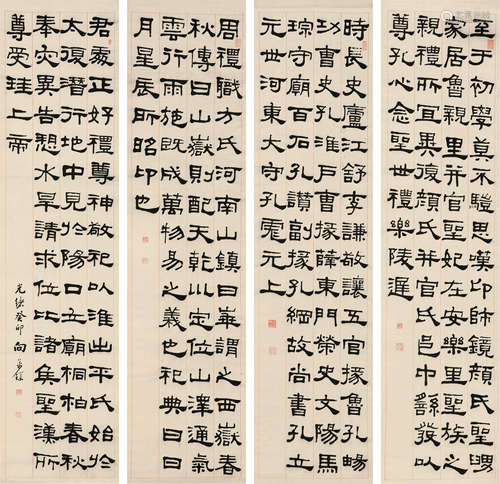 至于初學莫不驖思嘆卬師鏡顏氏聖舅
家居魯親里并官聖妃在安樂里聖族之
親禮所宜異復顏氏并官氏邑中繇發以
尊孔心念聖世禮樂陵遲
時長史廬江舒李謙敬讓五官掾魯孔暘
功曹史孔淮戶曹掾薛東門榮史文陽馬
琮守廟百石孔讃副掾孔綱故尚書孔立
元世河東大守孔彪元上
周禮職方氏河南山鎮曰崋謂之西嶽春
秋傳曰山嶽則配天乾巛定位山澤通氣
雲行雨施既成萬物易之義也祀典曰日
月星辰所昭卬也
君處正好禮尊神敬祀以淮出平氏始於
大復潛行地中見於陽口立廟桐柏春秋
奉灾異告愬水旱請求位比諸矦聖漢所
尊受珪上帝
光緒癸卯 向